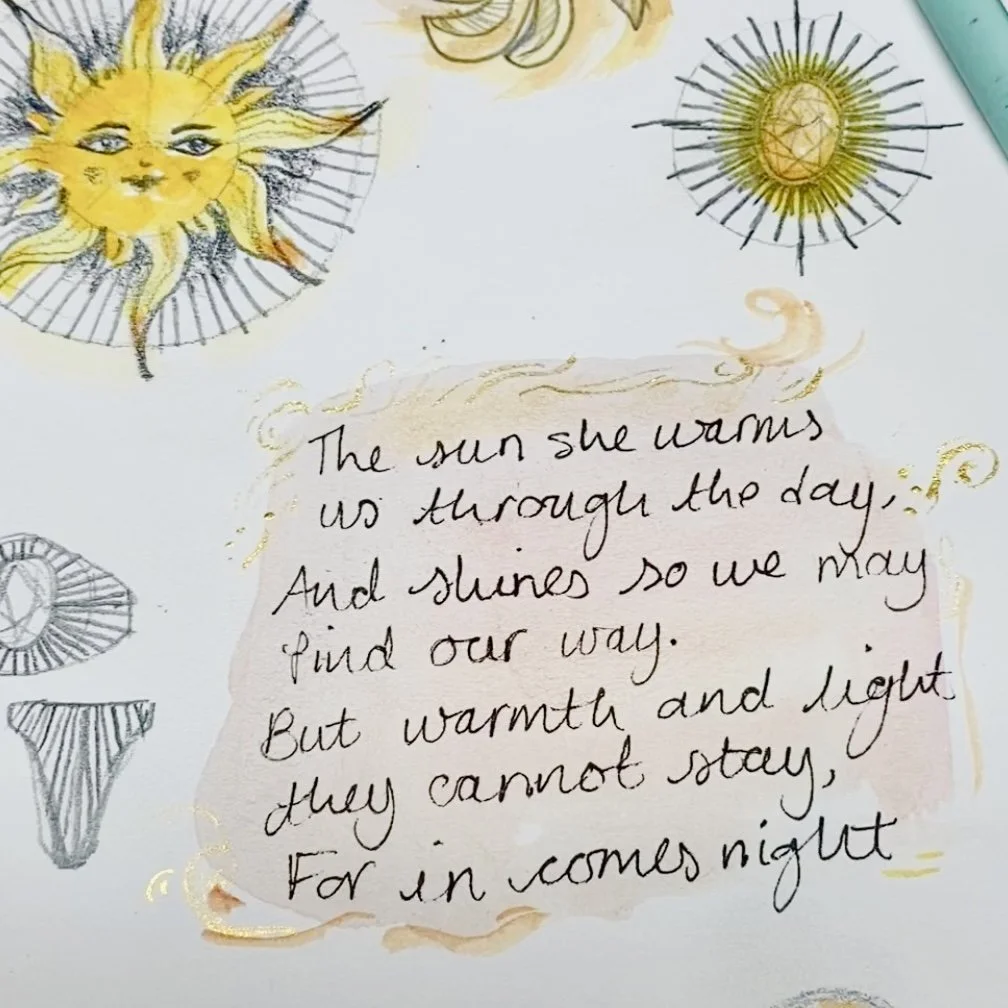 The sun she warms
us through the day,
And shines so we may
find our way.
But warmth and light
they cannot stay,
For in comes night